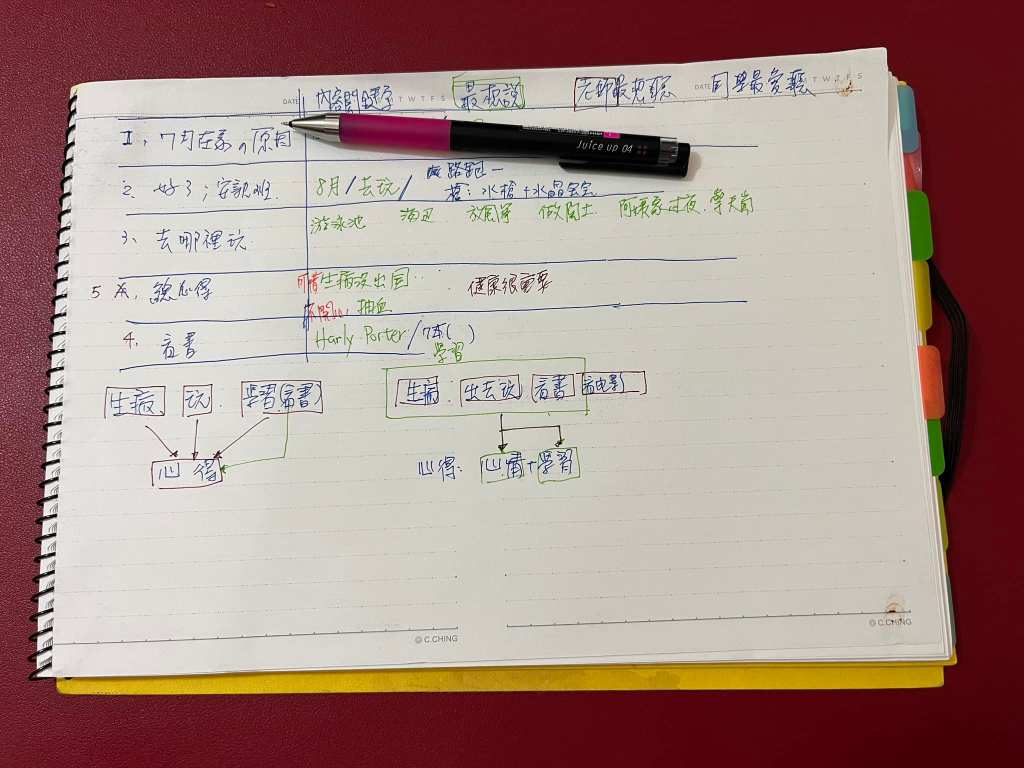 DATE 內容關鍵字 T W T F S 最想說 老師最想聽 DATE 同學最愛聽 T W T F S
1、7月在家, 原因
Juice up 04
路跑一
2. 好了; 安親班 8月/去玩/ 槍: 水槍+水晶
游泳池 海边 放風箏 做陶土 阿姨家过夜.
3、去哪裡玩
5 4、總心得 可惜生病沒出国.. 健康很重要
不開心, 抽血
4. 看書 Harly Porter/7本( )
學習
生病 玩. 學習(看書) 生病. 出去玩 看書 看电影
心得 心得: 心情+學習
© C.CHING © C.CHING